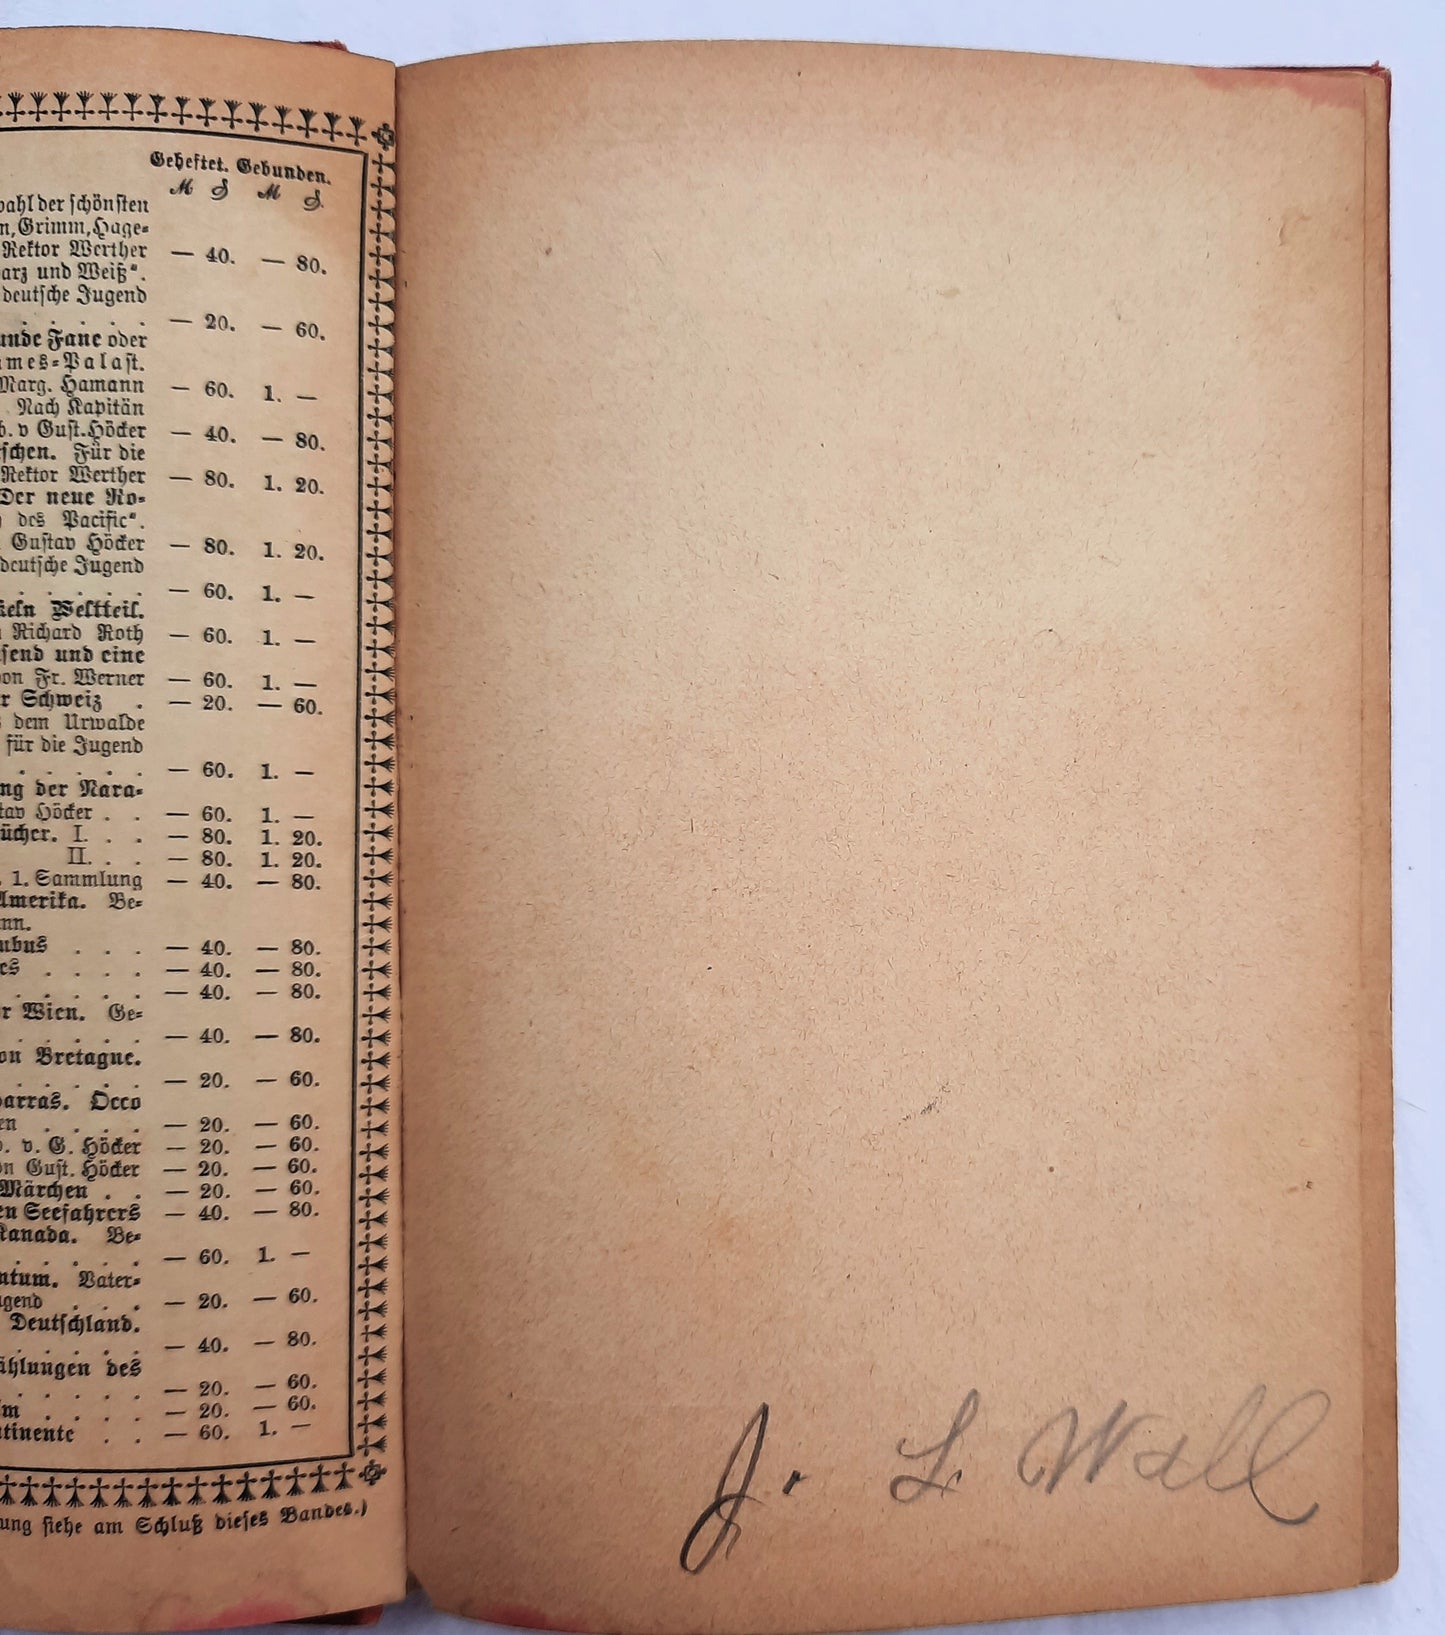 Geheftet. Gebunden.
M ₰ M ₰.
wahl der schönsten
n, Grimm, Hage-
Rektor Werther — 40. — 80.
arz und Weiß".
deutsche Jugend
. . . . . — 20. — 60.
unde Fane oder
mes-Palast.
Marg. Hamann — 60. 1. —
Nach Kapitän
b. v Gust. Höcker — 40. — 80.
schen. Für die
Rektor Werther — 80. 1. 20.
Der neue Ro-
des Pacific".
Gustav Höcker — 80. 1. 20.
deutsche Jugend
. . . . . — 60. 1. —
keln Weltteil.
Richard Roth — 60. 1. —
send und eine
on Fr. Werner — 60. 1. —
r Schweiz . — 20. — 60.
dem Urwalde
für die Jugend
. . . . . — 60. 1. —
ng der Nara-
tav Höcker . . — 60. 1. —
ücher. I. . . — 80. 1. 20.
II. . . — 80. 1. 20.
. 1. Sammlung — 40. — 80.
Amerika. Be-
nn.
ubus . . . — 40. — 80.
es . . . . — 40. — 80.
. . . . . — 40. — 80.
r Wien. Ge-
. . . . . — 40. — 80.
on Bretagne.
. . . . . — 20. — 60.
barras. Occo
en . . . . — 20. — 60.
b. v. G. Höcker — 20. — 60.
on Gust. Höcker — 20. — 60.
Märchen . . — 20. — 60.
en Seefahrers — 40. — 80.
Kanada. Be-
. . . . . — 60. 1. —
ntum. Vater-
ugend . . . — 20. — 60.
Deutschland.
. . . . . — 40. — 80.
ählungen des
. . . . . — 20. — 60.
m . . . . — 20. — 60.
tinente . . — 60. 1. —
ung siehe am Schluß dieses Bandes.)
J. L. Wall